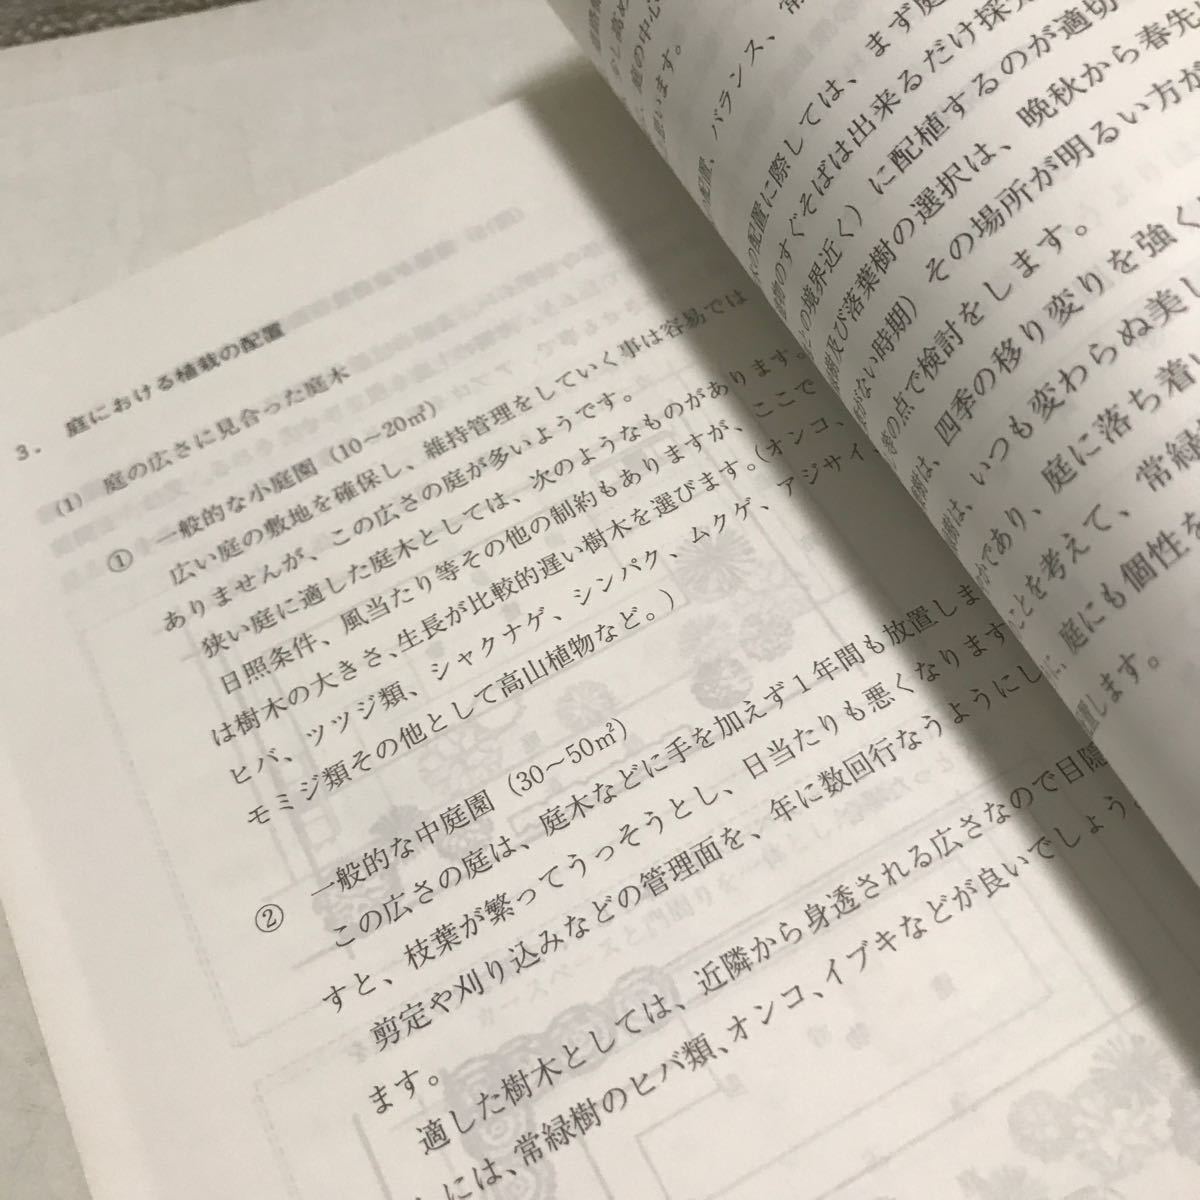 3. 庭における植栽の配置
(1) 庭の広さに見合った庭木
① 一般的な小庭園（10～20㎡）
広い庭の敷地を確保し、維持管理をしていく事は容易では
ありませんが、この広さの庭が多いようです。
狭い庭に適した庭木としては、次のようなものがあります。
日照条件、風当たり等その他の制約もありますが、ここで
は樹木の大きさ、生長が比較的遅い樹木を選びます。（オンコ、
ヒバ、ツツジ類、シャクナゲ、シンパク、ムクゲ、アジサイ
モミジ類その他として高山植物など。）
② 一般的な中庭園（30～50㎡）
この広さの庭は、庭木などに手を加えず1年間も放置しま
すと、枝葉が繁ってうっそうとし、日当たりも悪くなります
剪定や刈り込みなどの管理面を、年に数回行なうようにし
ます。
適した樹木としては、近隣から身透される広さなので目隠
には、常緑樹のヒバ類、オンコ、イブキなどが良いでしょう
庭の中心
思います。
配置、バランス、
の配置に際しては、まず庭
物のすぐそばは出来るだけ採
の境界近く）に配植するのが適切
及び落葉樹の選択は、晩秋から春先
がない時期）その場所が明るい方が
等の点で検討をします。
は、四季の移り変りを強く
樹は、いつも変わらぬ美し
かであり、庭に落ち着い
ことを考えて、常緑
に、庭にも個性を
置します。